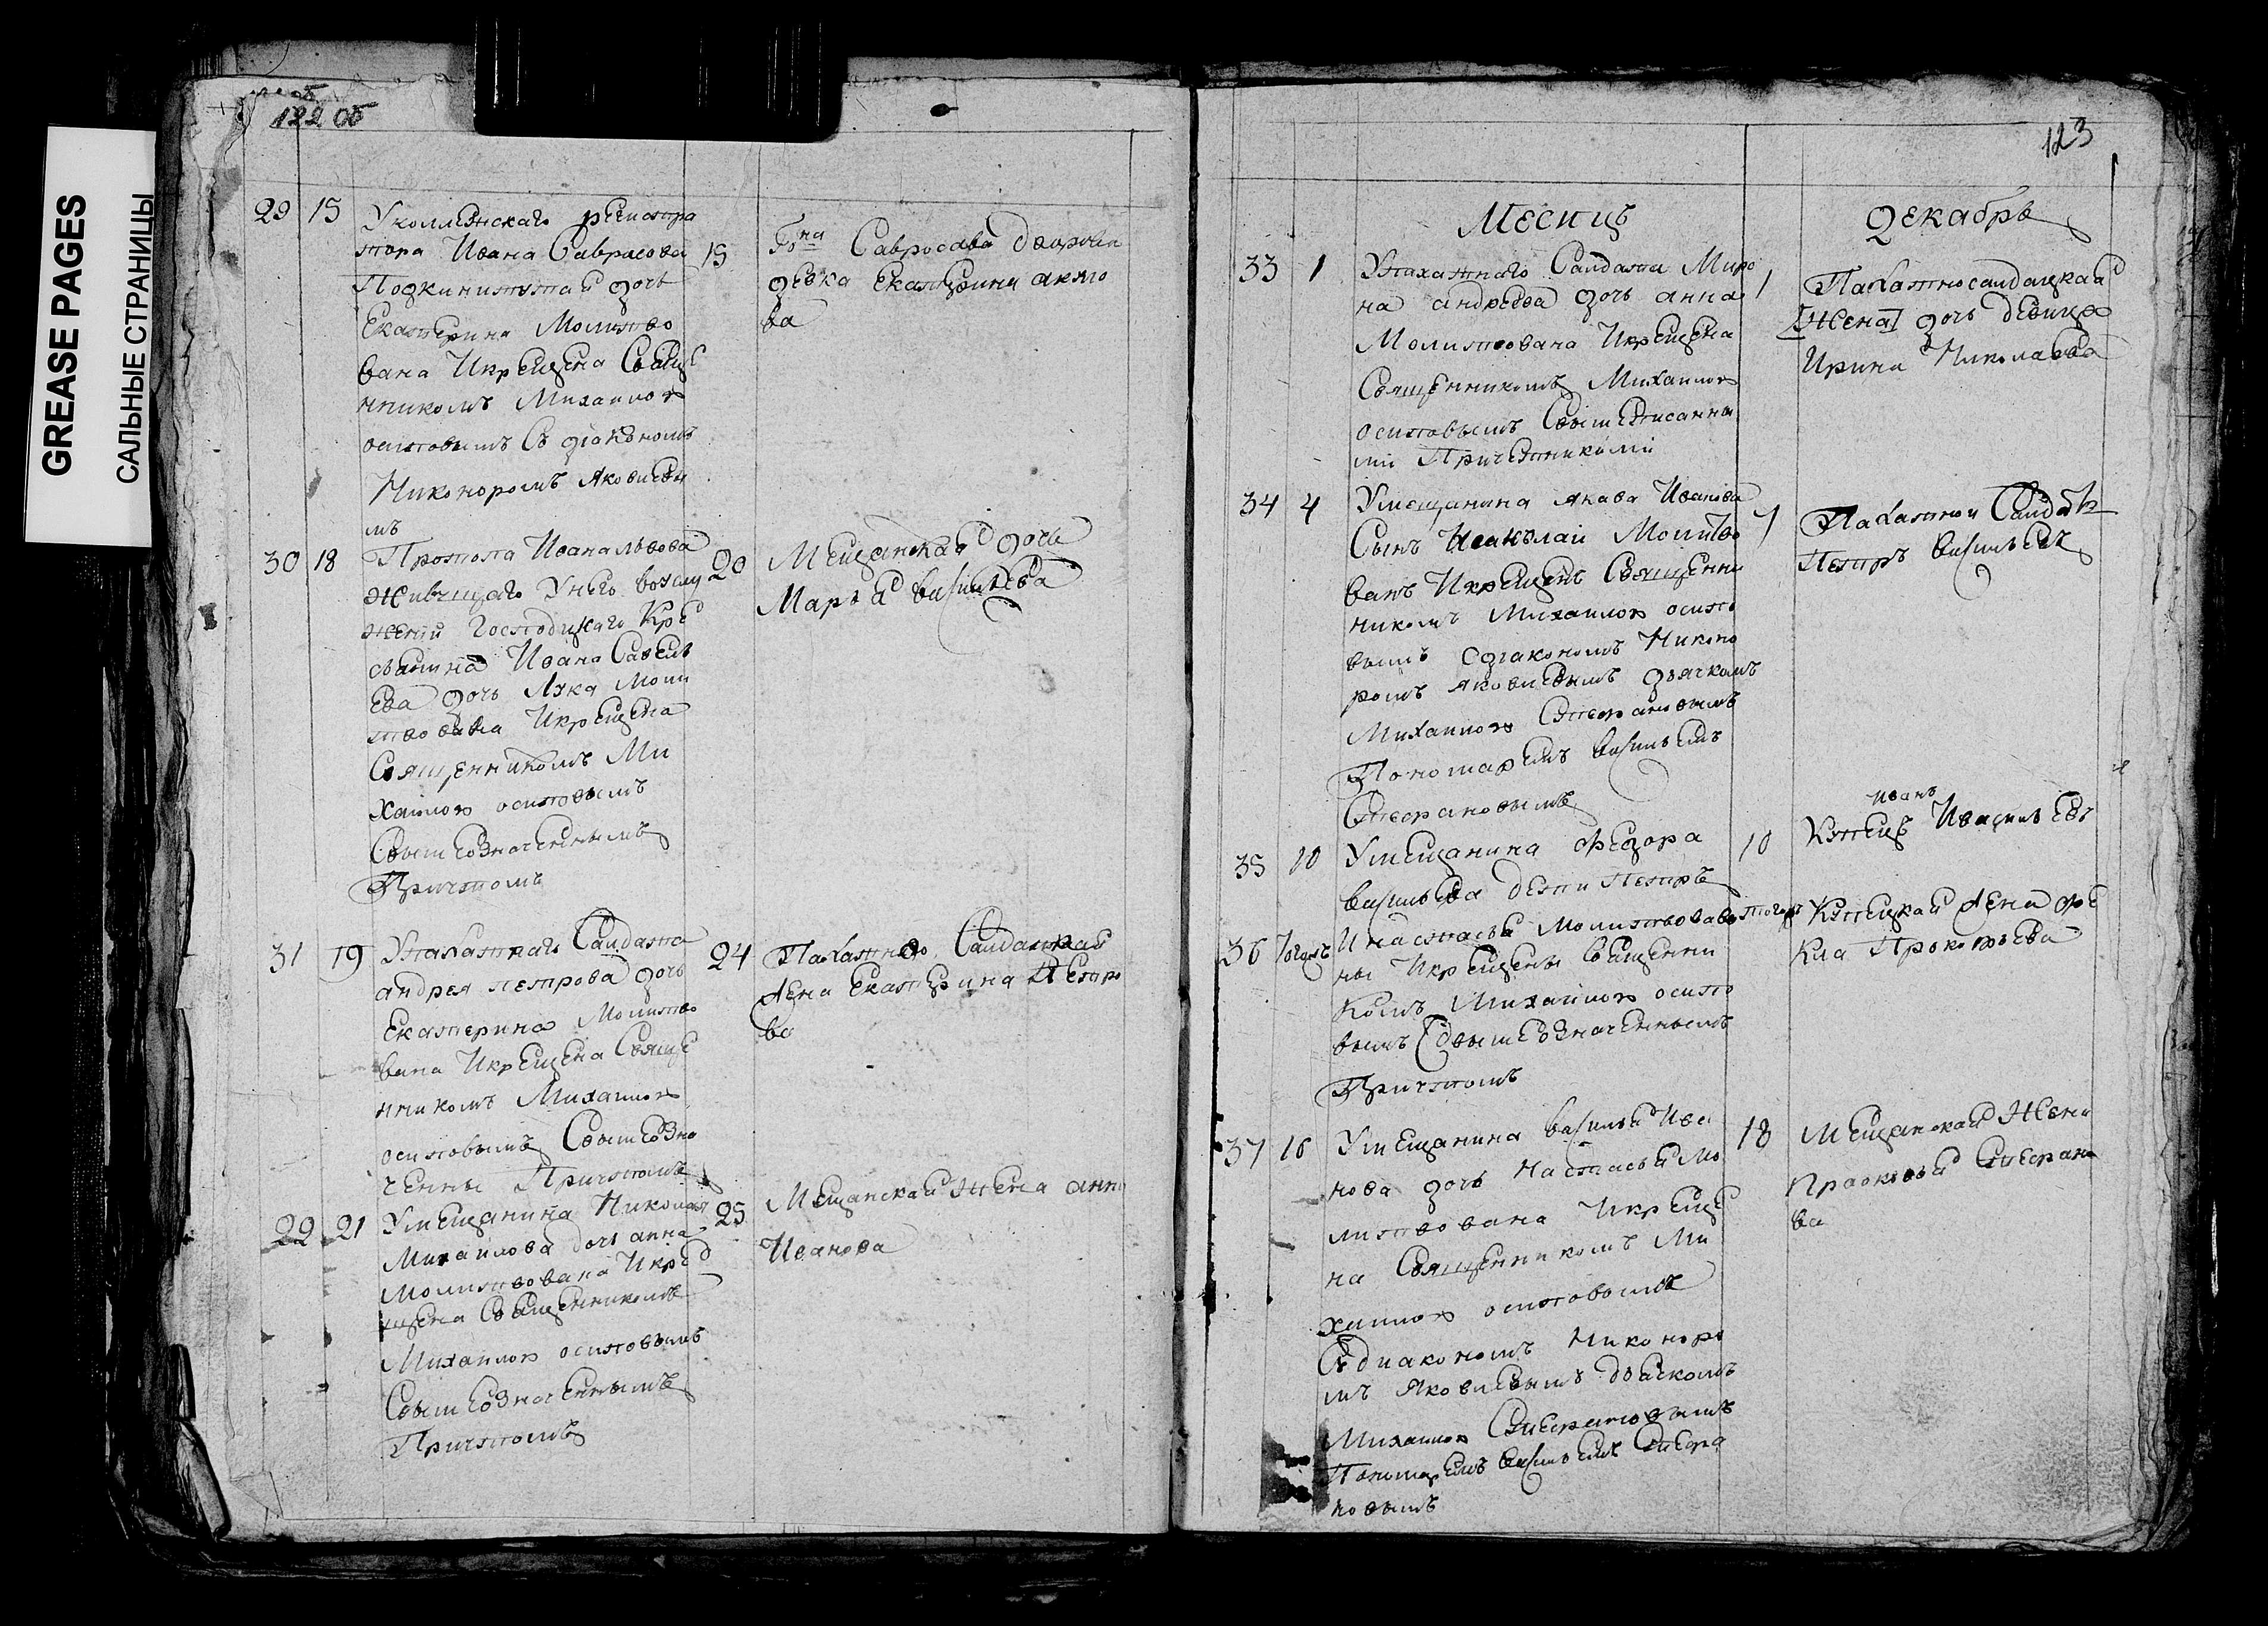 GREASE PAGES
САЛЬНЫЕ СТРАНИЦЫ
122 об
29 15 Уколлежскаго регистра
тора Ивана Саврасова
Подкинитутай дочь
Екатерина Молитво
вана Икрещена Свяще
нникомъ Михаилом
осиповымъ Съ диакономъ
Никоноромъ Яковлевы
мъ
15 Гна Савросова дворовая
девка Екатерина
ва
30 18 Протопа Ивана львова
живущаго Унего вуслу
жении Господскаго Кре
стьянина Ивана Савель
ева дочь Моли
твована Икрещена
Священникомъ Ми
хаилом осиповымъ
Свышеозначеннымъ
Причтомъ
20 Мещанская дочь
Марья васильева
31 19 Упахатнаго Салдата
андрея петрова дочь
Екатерина Молитво
вана Икрещена Свяще
нникомъ Михаилом
осиповымъ Свышеозна
ченны Причтомъ
24 Пахатнаго Салдатская
жена Екатерина Петро
ва
22 21 Умещанина Николая
Михаилова дочь анна
Молитвована Икре
щена Священникомъ
Михаилом осиповымъ
Свышеозначеннымъ
Причтомъ
25 Мещанская жена анна
Иванова
123
Месецъ Декабрь
33 1 Упахатнаго Салдата Миро
на андреева дочь анна
Молитвована Икрещена
Священникомъ Михаилом
осиповымъ Свышеписанны
ми Причетниками
1 Пахатносалдацкая
[жена] дочь девица
Ирина Николаева
34 4 Умещанина Якава Иванова
Сынъ Молитво
ванъ Икрещенъ Священни
никомъ Михаилом осипо
вымъ Сдиакономъ Никоно
ромъ яковлевымъ дьячкомъ
Михаилом Стефановымъ
Пономаремъ васильемъ
Стефановымъ
4 Пахатной Салдатъ
Петръ васильевъ
35 10 Умещанина Федора
васильева дети Петръ
10 Купецъ Иванъ Ивасильевъ
36 Тогожъ Инастасья Молитвова
ны Икрещены Священни
комъ Михаилом осипо
вымъ Свышеозначеннымъ
Причтомъ
тогожъ Купецкая жена Фе
кла Прокопьева
37 16 Умещанина василья Ива
нова дочь Настасья Мо
литвована Икреще
на Священникомъ Ми
хаилом осиповымъ
Сдиакономъ Никоноро
мъ Яковлевымъ дьячкомъ
Михаилом Стефановымъ
Пономаремъ васильемъ Стефа
новымъ
18 Мещанская жена
Прасковья Стефано
ва